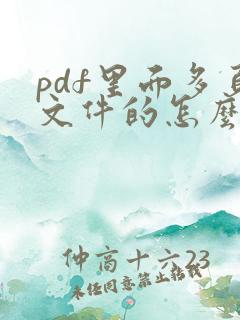 pdf里而多页
文件的怎麽
仲高十六23
未经同意禁止转载